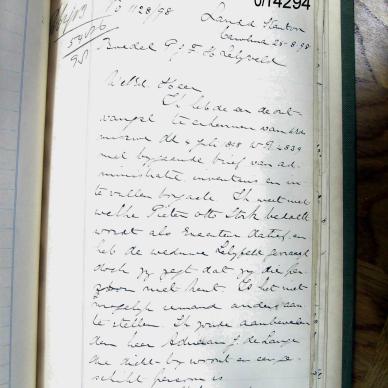 0/14294
R 1128/98
Landd. Kantoor
Carolina 25-8-98
54026
95
Boedel P J F H Lelyveld
WelEd. Heer
Ik heb de eer de ont-
vangst te erkennen van uwe
missive dd 4 Juli 898
met bygaande brief van ad-
ministratie, inventaris en in-
te vullen borgacte. Ik weet niet
welke Pieter Otto Stork bedoeld
wordt als Executeur Datief en
heb de weduwe Lelyveld gevraagd
doch zy zegt dat zy die per-
zoon niet kent. Is het niet
mogelyk iemand anders aan
te stellen. Ik zoude aanbevelen
den heer Adriaan J de Lange
die dicht by woont en een ge-
schikt persoon is